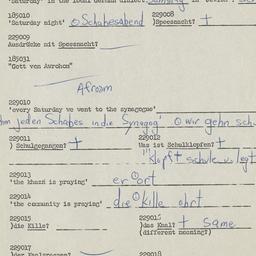 'Saturday' in the local German dialect.
185010 229008
'Saturday night' Schabesabend )Speesnacht? +
229009
Ausdrücke mit Speesnacht?
185031
"Gott von Avrohom"
Afroam
229010
'every Saturday we went to the synagogue'
jeden Schabes in die Synagog
229011 229012
) Schulgegangen? + Was ist Schulklopfen? +
klopft schule
229013
'the khazn is praying' er ort
229014
'the community is praying' die Kille ohrt
229015 229016
)die Kille? )das Kaal? + same
(different meaning?)
229017 229018